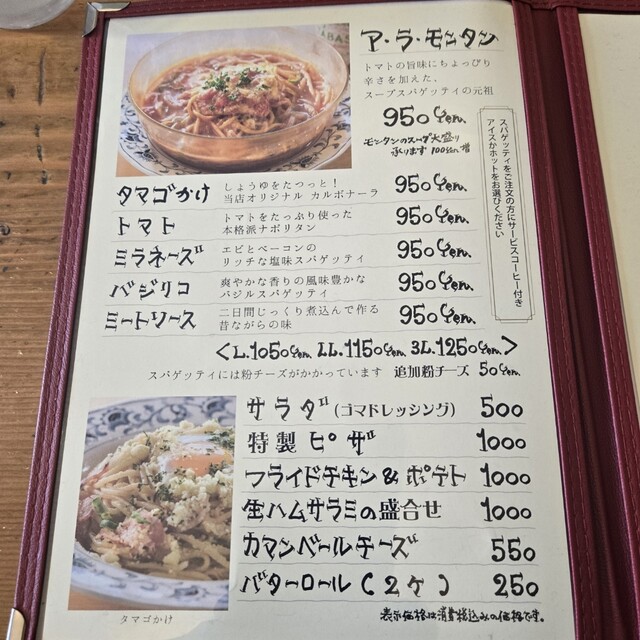 ア・ラ・モンタン
トマトの旨味にちょっぴり
辛さを加えた、
スープスパゲッティの元祖
950yen.
モンタンのスープ大盛り
承ります 100yen増
スパゲッティをご注文の方にサービスコーヒー付き
アイスかホットをお選びください
タマゴかけ しょうゆをたつっと！ 950yen.
当店オリジナル カルボナーラ
トマト トマトをたっぷり使った 950yen.
本格派ナポリタン
ミラネーズ エビとベーコンの 950yen.
リッチな塩味スパゲッティ
バジリコ 爽やかな香りの風味豊かな 950yen.
バジルスパゲッティ
ミートソース 二日間じっくり煮込んで作る 950yen.
昔ながらの味
<L.1050yen. LL.1150yen. 3L.1250yen.>
スパゲッティには粉チーズがかかっています 追加粉チーズ 50yen.
サラダ(ゴマドレッシング) 500
特製ピザ 1000
フライドチキン&ポテト 1000
生ハムサラミの盛合せ 1000
カマンベールチーズ 550
バターロール(2ケ) 250
タマゴかけ
表示価格は消費税込みの価格です。